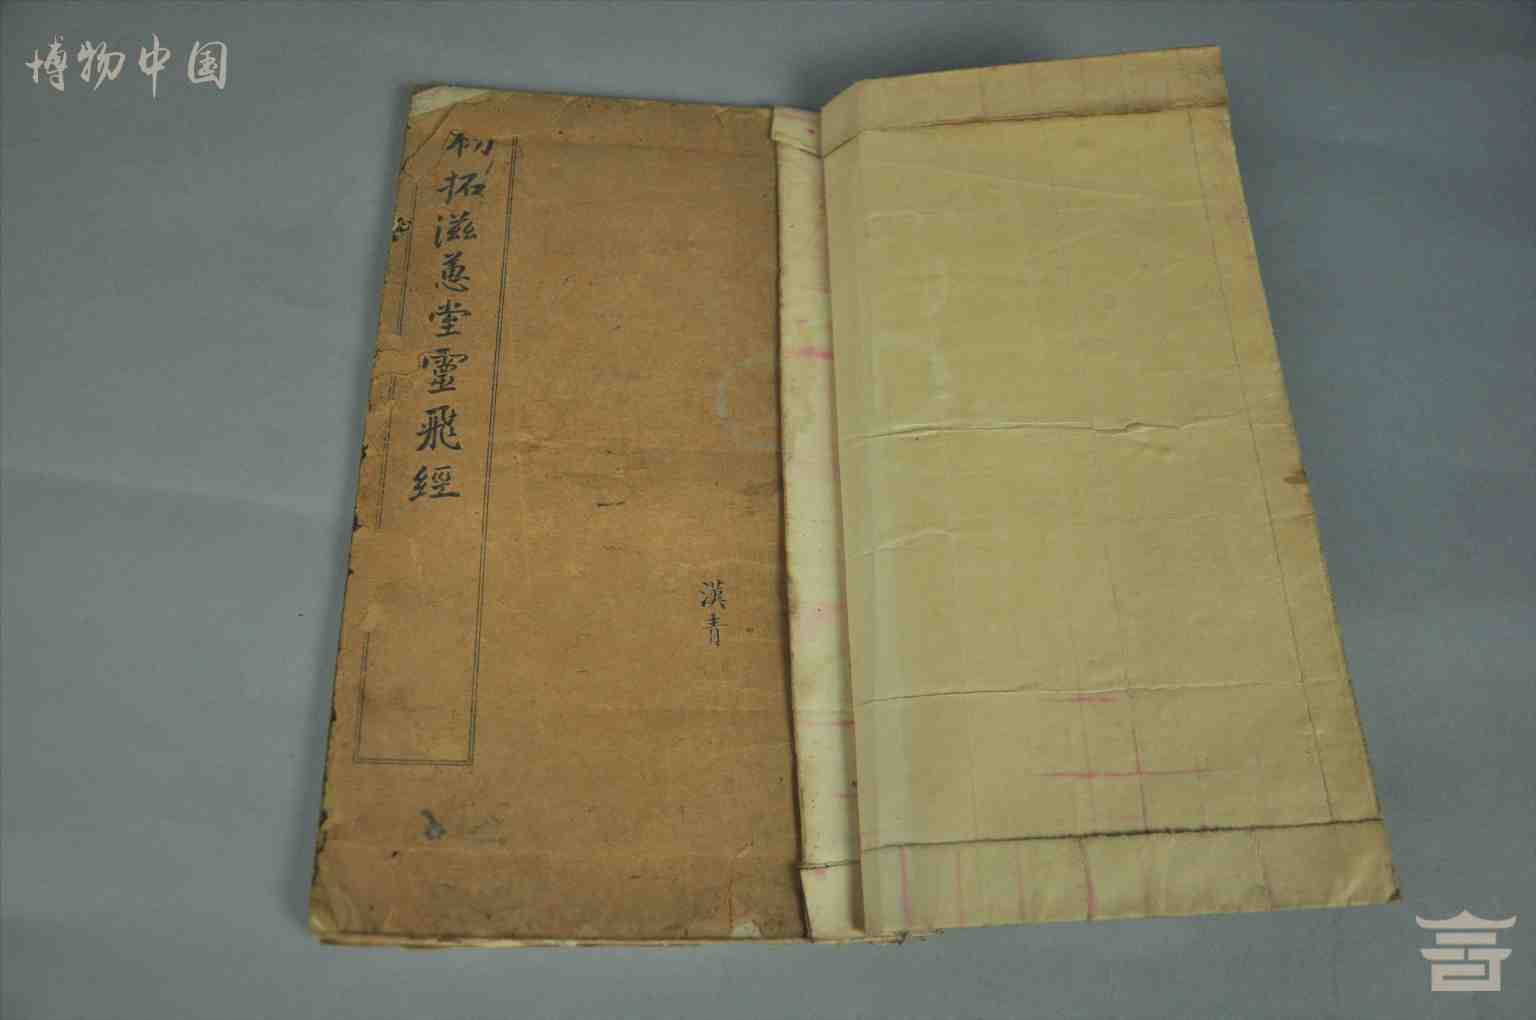 博物中国
初拓滋蕙堂靈飛經
漢青